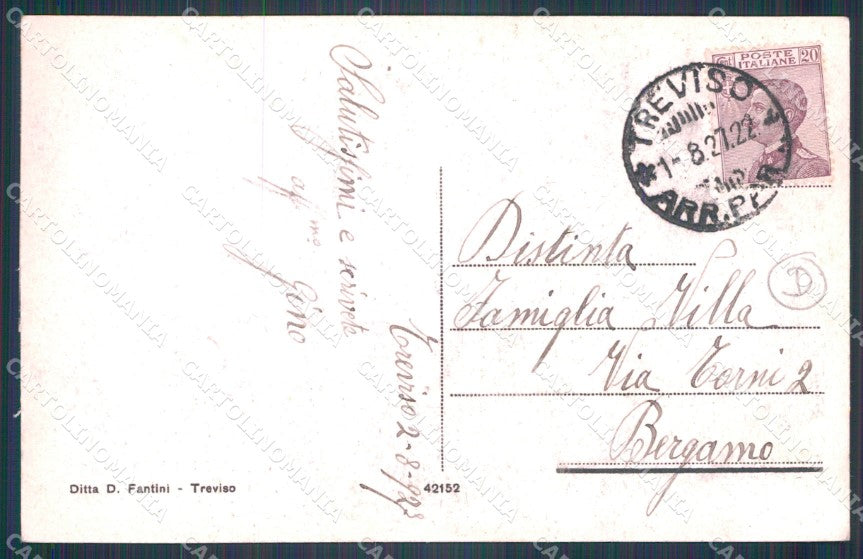 Salutissimi e scrivete
aff.mo
Gino
Treviso 2-8-1928
POSTE
ITALIANE
20
TREVISO
1-8.27.22
ARR.PP
Distinta
Famiglia Villa
Via Torni 2
Bergamo
D
Ditta D. Fantini - Treviso
42152
CARTOLINOMANIA